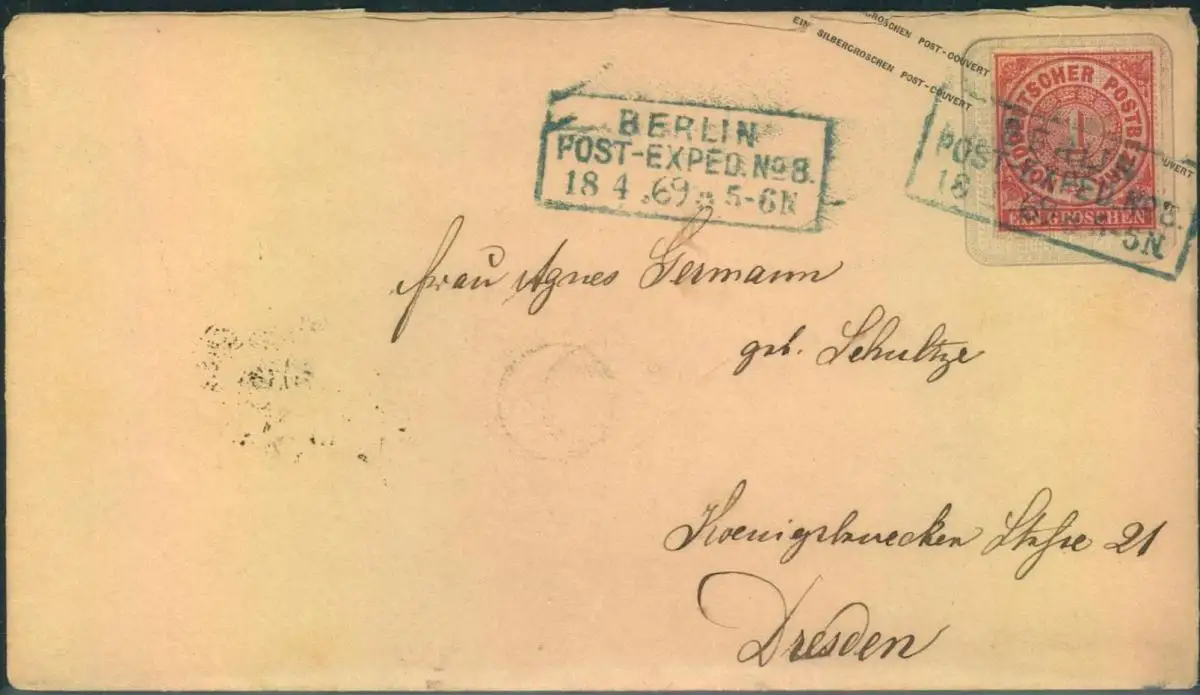 EIN SILBERGROSCHEN POST-COUVERT
GROSCHEN POST-COUVERT
NORDDEUTSCHER POSTBEZIRK
1
EIN GROSCHEN
BERLIN
POST-EXPED. No 8.
18 4 69 5-6N
POST-EXPED. No 8.
18 69 5N
Frau Agnes Germann
geb. Schultze
Koenigsbruecker Straße 21
Dresden